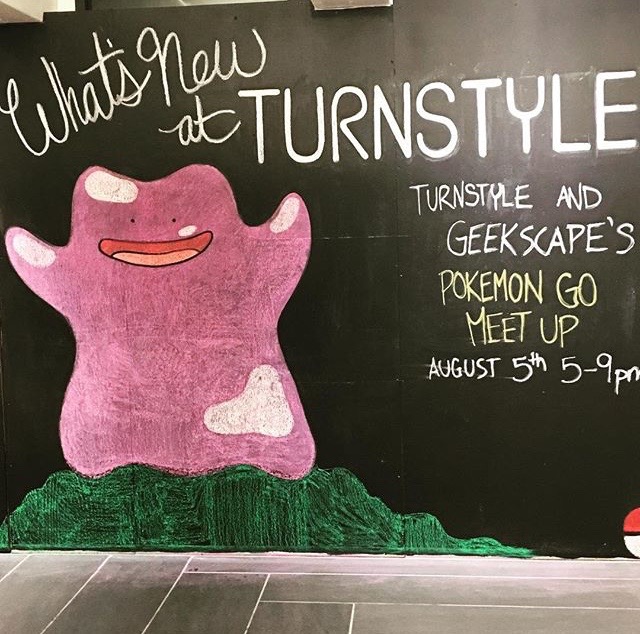 What's New
at TURNSTYLE
TURNSTYLE AND
GEEKSCAPE'S
POKEMON GO
MEET UP
AUGUST 5th 5-9pm